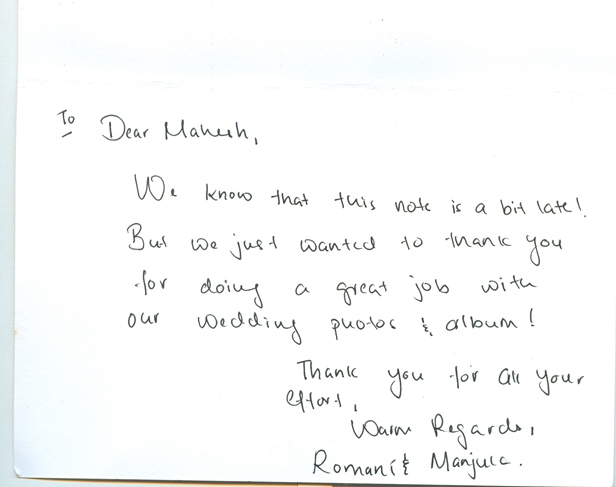 To
Dear Mahesh,
We know that this note is a bit late!
But we just wanted to thank you
for doing a great job with
our wedding photos & album!
Thank you for all your
effort,
Warm Regards,
Romani & Manjula.